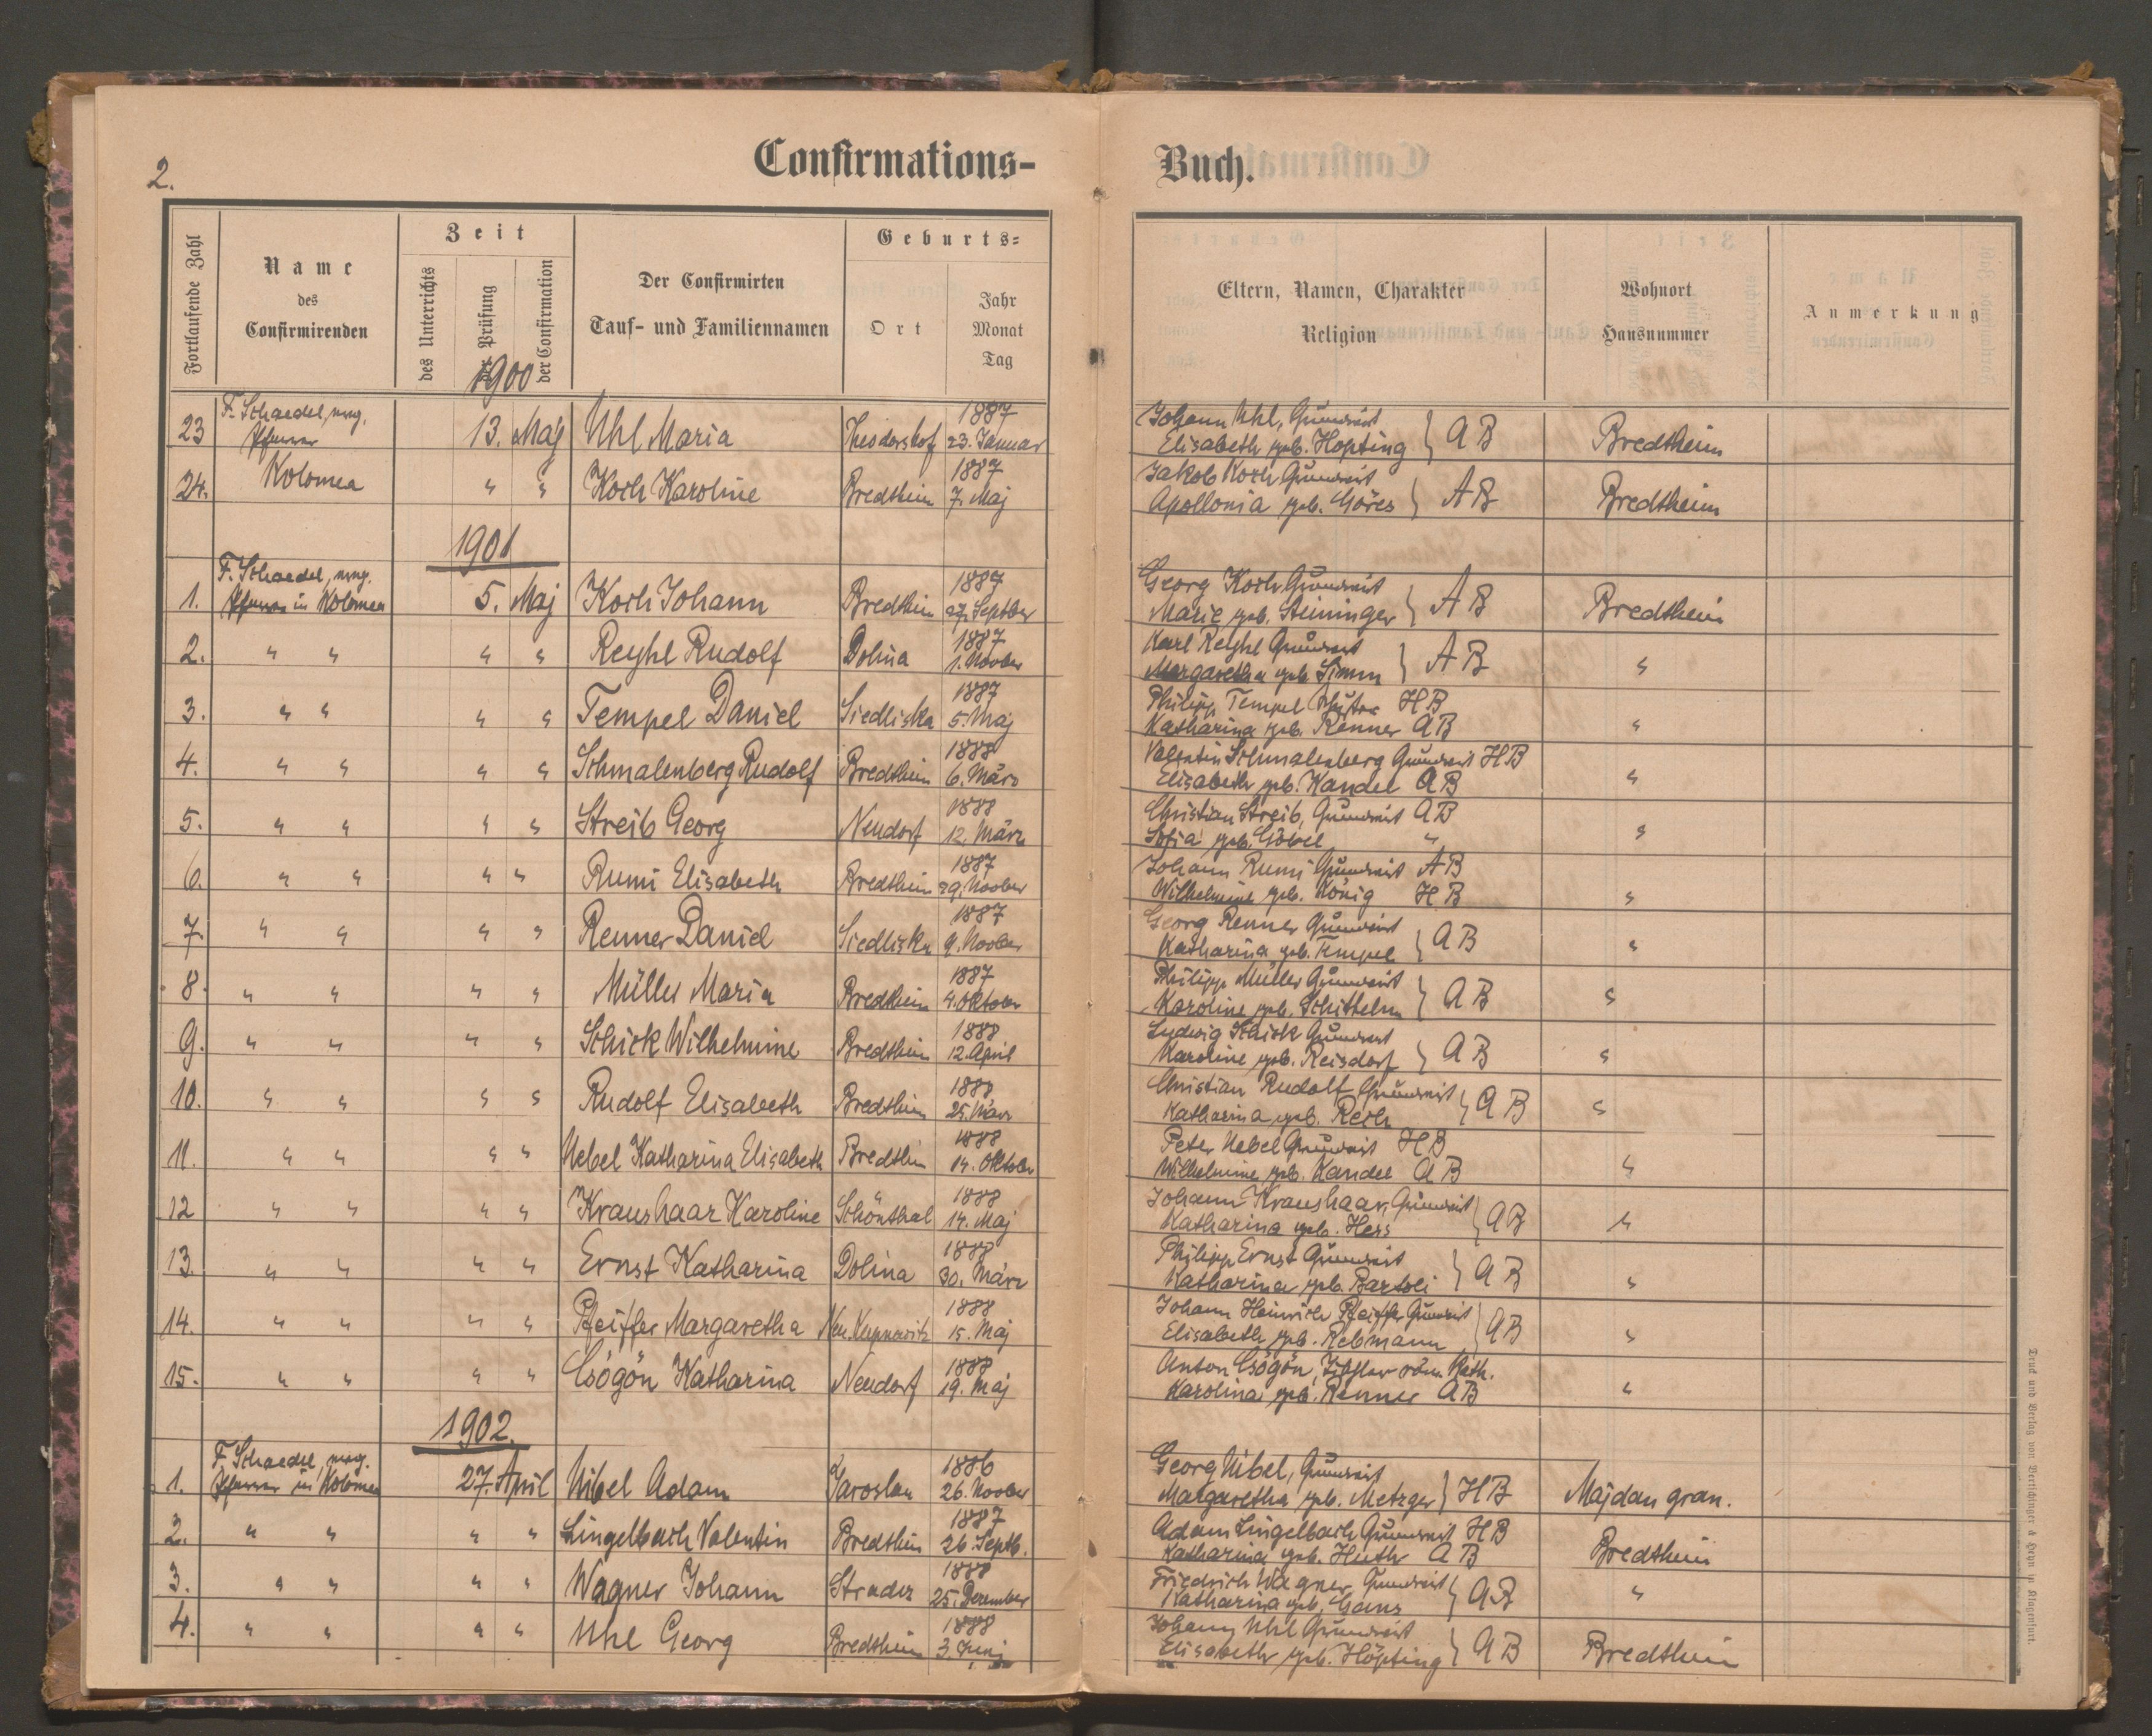 2.
Confirmations-
Buch.
Fortlaufende Zahl
Name
des
Confirmirenden
Zeit
des Unterrichts
der Prüfung
der Confirmation
1900
Der Confirmirten
Tauf- und Familiennamen
Geburts-
Ort
Jahr
Monat
Tag
Eltern, Namen, Charakter
Religion
Wohnort
Hausnummer
Anmerkung
23 F. Schaedel, evng. Pfarrer 13. Maj Uhl Maria Theodorshof 1887 23. Januar Johann Uhl, Grundwirt Elisabeth geb. Hopting } AB Bredtheim
24. Kolomea " " Koch Karoline Bredtheim 1887 7. Maj Jakob Koch Grundwirt Apollonia geb. Göres } AB Bredtheim
1901
1. F. Schaedel, evng. Pfarrer in Kolomea 5. Maj Koch Johann Bredtheim 1887 27. Septber Georg Koch Grundwirt Marie geb. Steininger } AB Bredtheim
2. " " " " Reyhl Rudolf Dolina 1887 1. Novber Karl Reyhl Grundwirt Margaretha geb. Simm } AB "
3. " " " " Tempel Daniel Siedliska 1887 5. Maj Philipp Tempel HB Katharina geb. Renner AB "
4. " " " " Schmalenberg Rudolf Bredtheim 1888 6. März Valentin Schmalenberg Grundwirt HB Elisabeth geb. Kandel AB "
5. " " " " Streib Georg Neudorf 1888 12. März Christian Streib, Grundwirt AB Sofia geb. Göbel " "
6. " " " " Rumi Elisabeth Bredtheim 1887 29. Novber Johann Rumi Grundwirt AB Wilhelmine geb. König HB "
7. " " " " Renner Daniel Siedliska 1887 9. Novber Georg Renner Grundwirt Katharina geb. Tempel } AB "
8. " " " " Müller Maria Bredtheim 1887 4. Oktober Philipp Müller Grundwirt Karoline geb. Schitthelm } AB "
9. " " " " Schick Wilhelmine Bredtheim 1888 12. April Ludwig Schick Grundwirt Karoline geb. Reisdorf } AB "
10. " " " " Rudolf Elisabeth Bredtheim 1888 25. März Christian Rudolf Grundwirt Katharina geb. } AB "
11. " " " " Uebel Katharina Elisabeth Bredtheim 1888 14. Oktober Peter Uebel Grundwirt HB Wilhelmine geb. Kandel AB "
12 " " " " Kraushaar Karoline Schönthal 1888 14. Maj Johann Kraushaar, Grundwirt Katharina geb. Hess } AB "
13. " " " " Ernst Katharina Dolina 1888 30. März Philipp Ernst Grundwirt Katharina geb. } AB "
14. " " " " Pfeiffer Margaretha Neu. 1888 15. Maj Johann Heinrich Pfeiffer Grundwirt Elisabeth geb. Rebmann } AB "
15. " " " " Csögön Katharina Neudorf 1888 19. Maj Anton Csögön, Tischler röm. Kath. Karolina geb. Renner AB "
1902.
1. F. Schaedel, evng. Pfarrer in Kolomea 27. April Uibel Adam Jaroslau 1886 26. Novber Georg Uibel, Grundwirt Margaretha geb. Metzger } HB Majdan gran.
2. " " " " Lingelbach Valentin Bredtheim 1887 26. Septb. Adam Lingelbach Grundwirt HB Katharina geb. Huth AB Bredtheim
3. " " " " Wagner Johann 1888 25. Dezember Friedrich Wagner Grundwirt Katharina geb. Gans } AB "
4. " " " " Uhl Georg Bredtheim 1888 3. Juni Johann Uhl Grundwirt Elisabeth geb. Höpting } AB Bredtheim
Druck und Verlag von Bertschinger & Heyn in Klagenfurt.